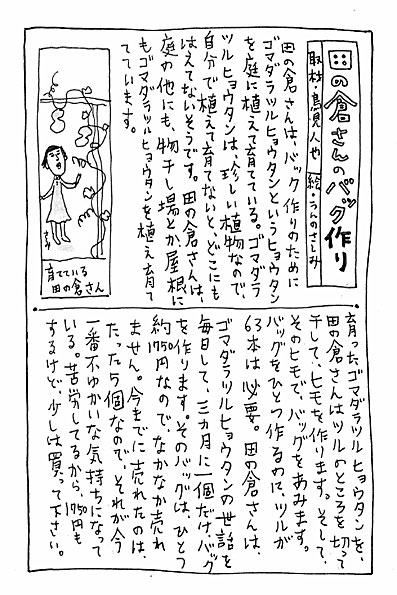 田の倉さんのバッグ作り
取材・鳥見人や 絵・うんのさしみ
田の倉さんは、バック作りのために
ゴマダラツルヒョウタンというヒョウタン
を庭に植えて育てている。ゴマダラ
ツルヒョウタンは、珍しい植物なので、
自分で植えて育てないと、どこにも
はえてないそうです。田の倉さんは、
庭の他にも、物干し場とか、屋根に
もゴマダラツルヒョウタンを植え育て
ています。
育てている
田の倉さん
育ったゴマダラツルヒョウタンを、
田の倉さんはツルのところを切って
干して、ヒモを作ります。そして、
そのヒモで、バッグをあみます。
バッグをひとつ作るのに、ツルが
63本は必要。田の倉さんは、
ゴマダラツルヒョウタンの世話を
毎日して、三ヵ月に一個だけ、バッグ
を作ります。そのバッグは、ひとつ
約1750円なので、なかなか売れ
ません。今までに売れたのは、
たったら個なので、それが今
一番不ゆかいな気持ちになって
いる。苦労してるから、1750円も
するけど、少しは買って下さい。